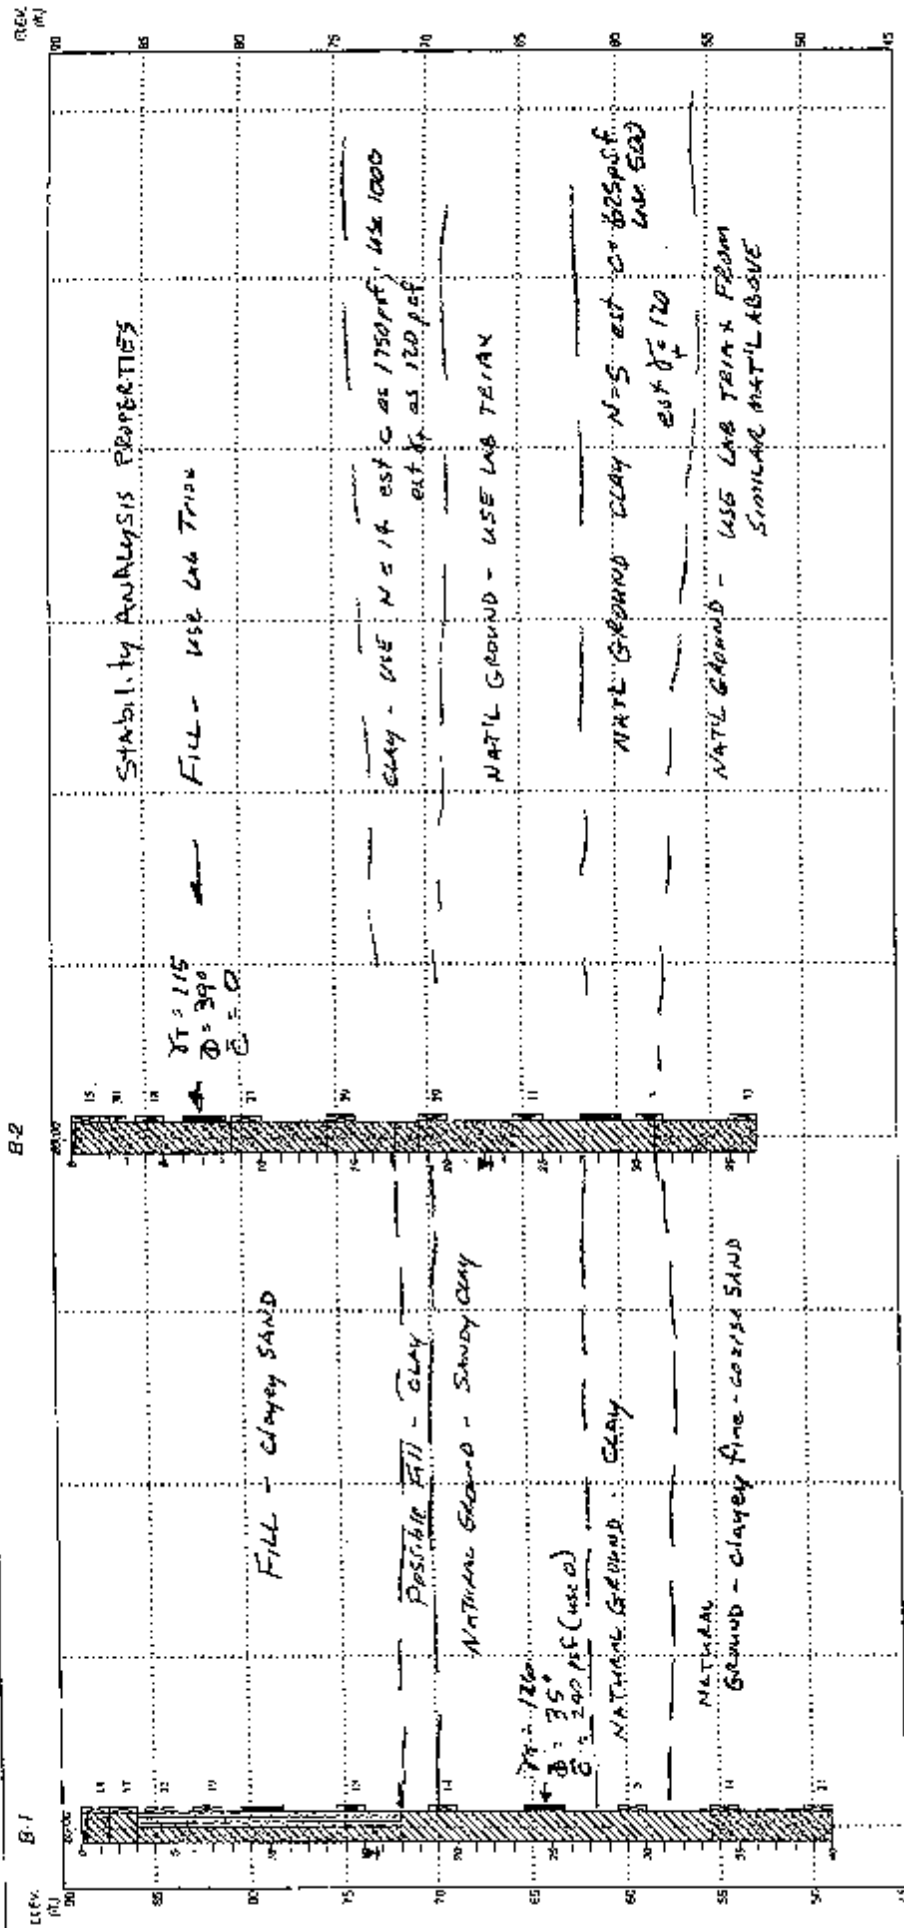 B-1
B-2
ELEV.
(ft)
90
85
80
75
70
65
60
55
50
45
Stability ANALYSIS PROPERTIES
γT = 115
Φ = 39°
c̄ = 0
FILL - USE LAB TRIAX
CLAY - USE N = 14 est c as 1750 psf, use 1000
est γT as 120 pcf
NAT'L GROUND - USE LAB TRIAX
NAT'L GROUND CLAY N=5 est c = 625 psf
use 500
est γT = 120
NAT'L GROUND - USE LAB TRIAX FROM
SIMILAR MAT'L ABOVE
FILL - Clayey SAND
Possible Fill - CLAY
NATURAL GROUND - SANDY CLAY
γT = 126
Φ = 35°
c̄ = 240 psf (use 0)
NATURAL GROUND - CLAY
NATURAL
GROUND - Clayey fine - coarse SAND